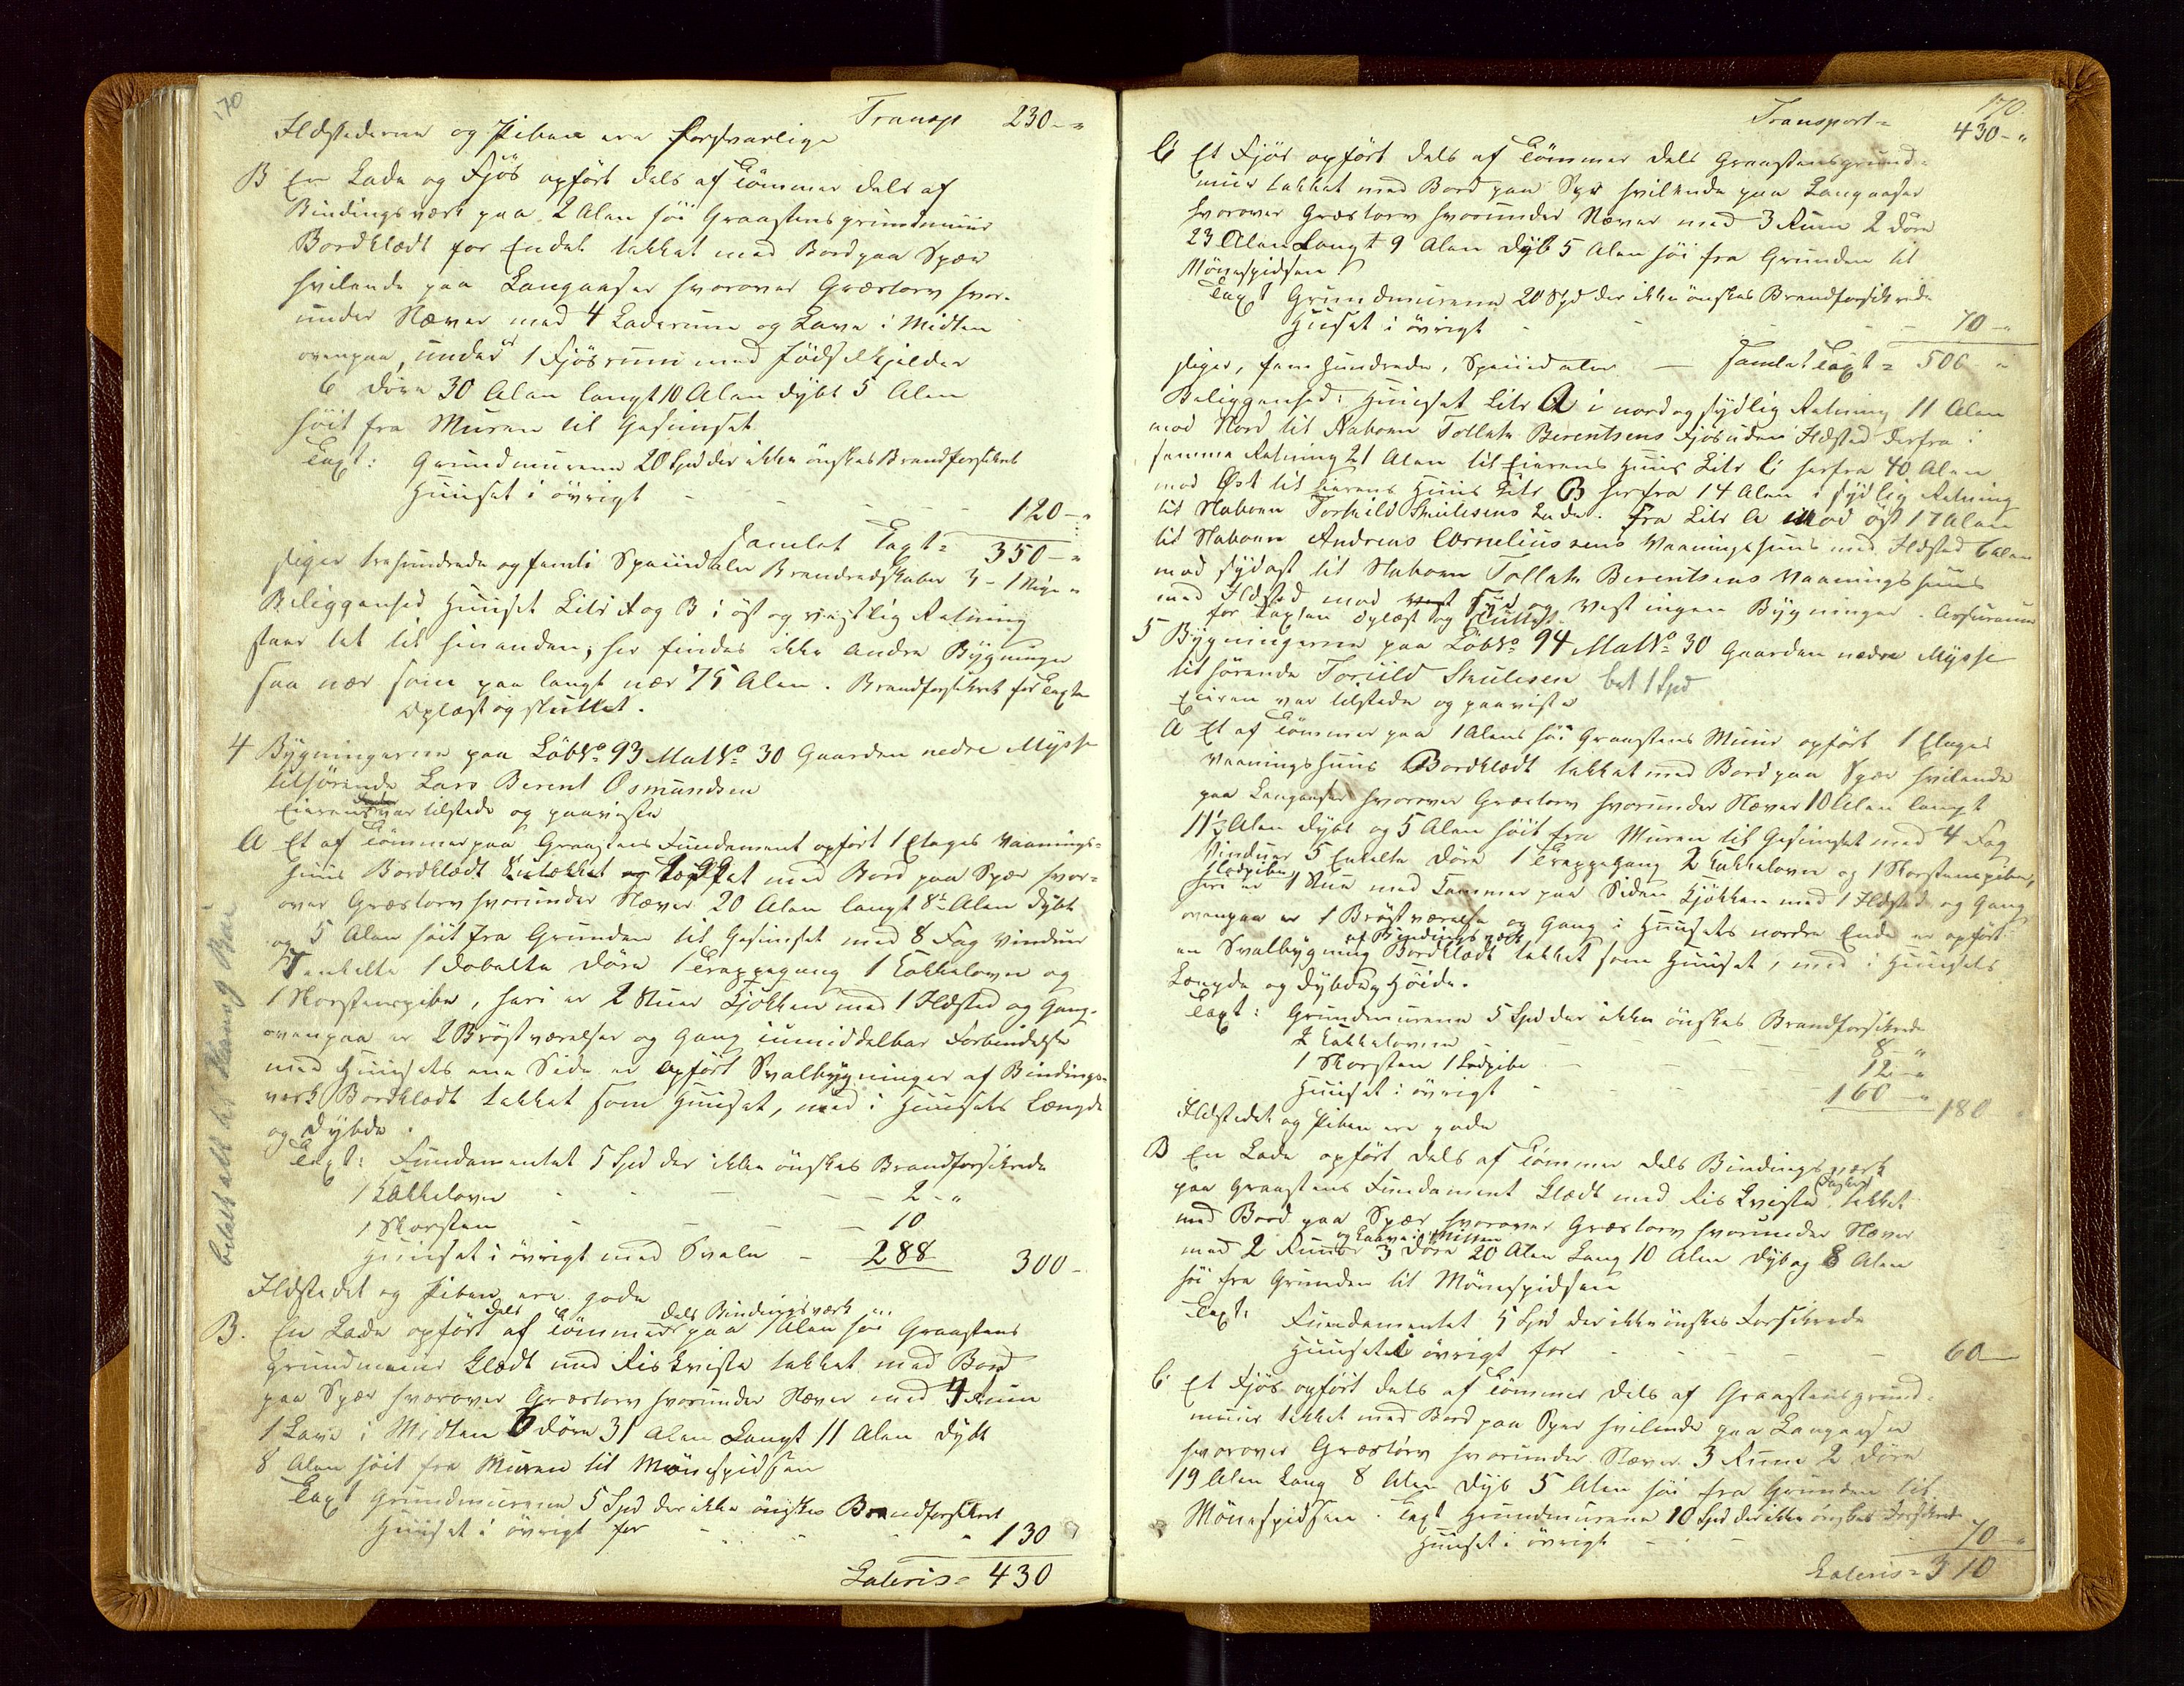 170
Transp 230 - "
Ildstederne og Piben ere forsvarlige
B En Lade og Fjös opfört dels af Tömmer dels af
Bindingsværk paa 2 Alen höi Graastensgrundmuur
Bordklædt for Endet takket med Bord paa Spær
hvilende paa Langaaser hvorover Græstorv hvor-
under Næver med 4 Laderum og Lave i Midten
ovenpaa, under 1 Fjösrum med Födselkjelder
6 Döre 30 Alen langt 10 Alen dybt 5 Alen
höit fra Muren til Gesimset
Taxt: Grundmurene 20 Spd der ikke önskes Brandforsikret
Huuset i övrigt - - - - 120 - "
Samlet Taxt = 350 - "
siger trehundrede og femti Speciedaler Brandredskaber 3 - 1 Stige "
Beliggenhed Huuset Litr A og B i öst og vestlig Retning
staar tæt til hinanden; her findes ikke andre Bygninger
saa nær som paa langt nær 75 Alen. Brandforsikret for Taxten
Oplæst og sluttet.
4 Bygningerne paa LöbNo 93 MatNo 30 Gaarden nedre Mysse
tilhörende Lars Berent Osmundsen
Eieren var tilstede og paaviste
A Et af Tömmer paa Graastens Fundament opfört 1 Etages Vaanings-
huus Bordklædt takket med Bord paa Spær hvor-
over Græstorv hvorunder Næver 20 Alen langt 8½ Alen dybt
og 5 Alen höit fra Grunden til Gesimset med 8 Fag Vinduer
7 enkelte 1 dobelte Döre 1 Trappegang 1 Kakkelovn og
1 Skorstenspibe, heri er 2 Stuer Kjökken med 1 Ildsted og Gang.
ovenpaa er 2 Bröstværelser og Gang i umiddelbar Forbindelse
med Huusets ene Side er opfört Svalbygninger af Bindings-
værk Bordklædt takket som Huuset, med i Huusets Længde
og Dybde.
Taxt: Fundamentet 5 Spd der ikke önskes Brandforsikrede
1 Kakkelovn - - - - 2 - "
1 Skorsten - - - - 10
Huuset i övrigt med Svale - 288 300 -
Ildstedet og Piben ere gode
B. En Lade opfört dels af Tömmer dels Bindingsværk paa 1 Alen höi Graastens
grundmuur Klædt med Riskviste takket med Bord
paa Spær hvorover Græstorv hvorunder Næver med 4 Rum
1 Lave i Midten 6 Döre 31 Alen Langt 11 Alen dybt
8 Alen höit fra Muren til Mönespidsen
Taxt Grundmurene 5 Spd der ikke önskes Brandforsikret
Huuset i övrigt for - - - " 130
Lateris = 430
170.
Transport = 430 - "
C Et Fjös opfört dels af Tömmer dels Graastensgrund-
muur takket med Bord paa Spær hvilende paa Langaaser
hvorover Græstorv hvorunder Næver med 3 Rum 2 Döre
23 Alen Langt 9 Alen Dyb 5 Alen höi fra Grunden til
Mönespidsen
Taxt Grundmurene 20 Spd der ikke önskes Brandforsikrede
Huuset i övrigt - - - - 70 - "
siger, fem Hundrede, Speciedaler - Samlet Taxt = 500 "
Beliggenhed: Huuset Litr A i nord og sydlig Retning 11 Alen
mod Nord til Naboen Tollak Berentsens Fjös uden Ildsted derfra i
samme Retning 21 Alen til Eierens Huus Litr C herfra 40 Alen
mod Öst til Eierens Huus Litr B herfra 14 Alen i sydlig Retning
til Naboen Torkild Skulesens Lade. Fra Litr A mod öst 17 Alen
til Naboen Andreas Corneliussens Vaaningshuus med Ildsted 6 Alen
mod sydost til Naboen Tollak Berentsens Vaaningshuus
med Ildsted mod Syd og Vest ingen Bygninger. Assurerende
for Taxten Oplæst og Sluttet.
5 Bygningerne paa LöbNo 94 MatNo 30 Gaarden nedre Mysse
tilhörende Torkild Skulesen bet 1 Spd
Eieren var tilstede og paaviste
A Et af Tömmer paa 1 Alens höi Graastens Muur opfört 1 Etages
Vaaningshuus Bordklædt takket med Bord paa Spær hvilende
paa Langaaser hvorover Græstorv hvorunder Næver 10 Alen langt
11½ Alen dybt og 5 Alen höit fra Muren til Gesimset med 4 Fag
Vinduer 5 Enkelte Döre 1 Trappegang 2 Kakkelovne og 1 Skorstenspibe,
heri er 1 Stue med Kammer paa Siden Kjökken med 1 Ildsted og Gang
ovenpaa er 1 Bröstværelse og Gang i Huusets nordre Ende er opfört
en Svalbygning af Bindingsværk Bordklædt takket som Huuset, med i Huusets
Længde og Dybde og Höide.
Taxt: Grundmurene 5 Spd der ikke önskes Brandforsikrede
2 Kakkelovne - - - - 8 - "
1 Skorsten 1 Ledpibe - - - 12 - "
Huuset i övrigt - - - 160 - " 180
Ildstedet og Piben ere gode
B En Lade opfört dels af Tömmer dels Bindingsværk
paa Graastens Fundament Klædt med Riskviste takket
med Bord paa Spær hvorover Græstorv hvorunder Næver
med 2 Rum og Lave i Midten 3 Döre 20 Alen Lang 10 Alen Dyb og 8 Alen
höi fra Grunden til Mönespidsen
Taxt: Fundamentet 5 Spd der ikke önskes Forsikrede
Huuset i övrigt for - - - - 60 -
C Et Fjös opfört dels af Tömmer dels af Graastensgrund-
muur takket med Bord paa Spær hvilende paa Langaaser
hvorover Græstörv hvorunder Næver 3 Rum 2 Döre
19 Alen Lang 8 Alen Dyb 5 Alen höi fra Grunden til
Mönespidsen. Taxt Grundmurene 10 Spd der ikke önskes Forsikrede
Huuset i övrigt - - 70 - "
Lateris = 310